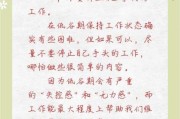 工作。
在低谷期保持工作状态确
实有些困难，但如果可以，尽
量不要停止自己手头的工作，
哪怕做些很简单的内容。
因为低谷期会有严重
的“失控感”和“无力感”，而
工作能最大程度上帮助我们维